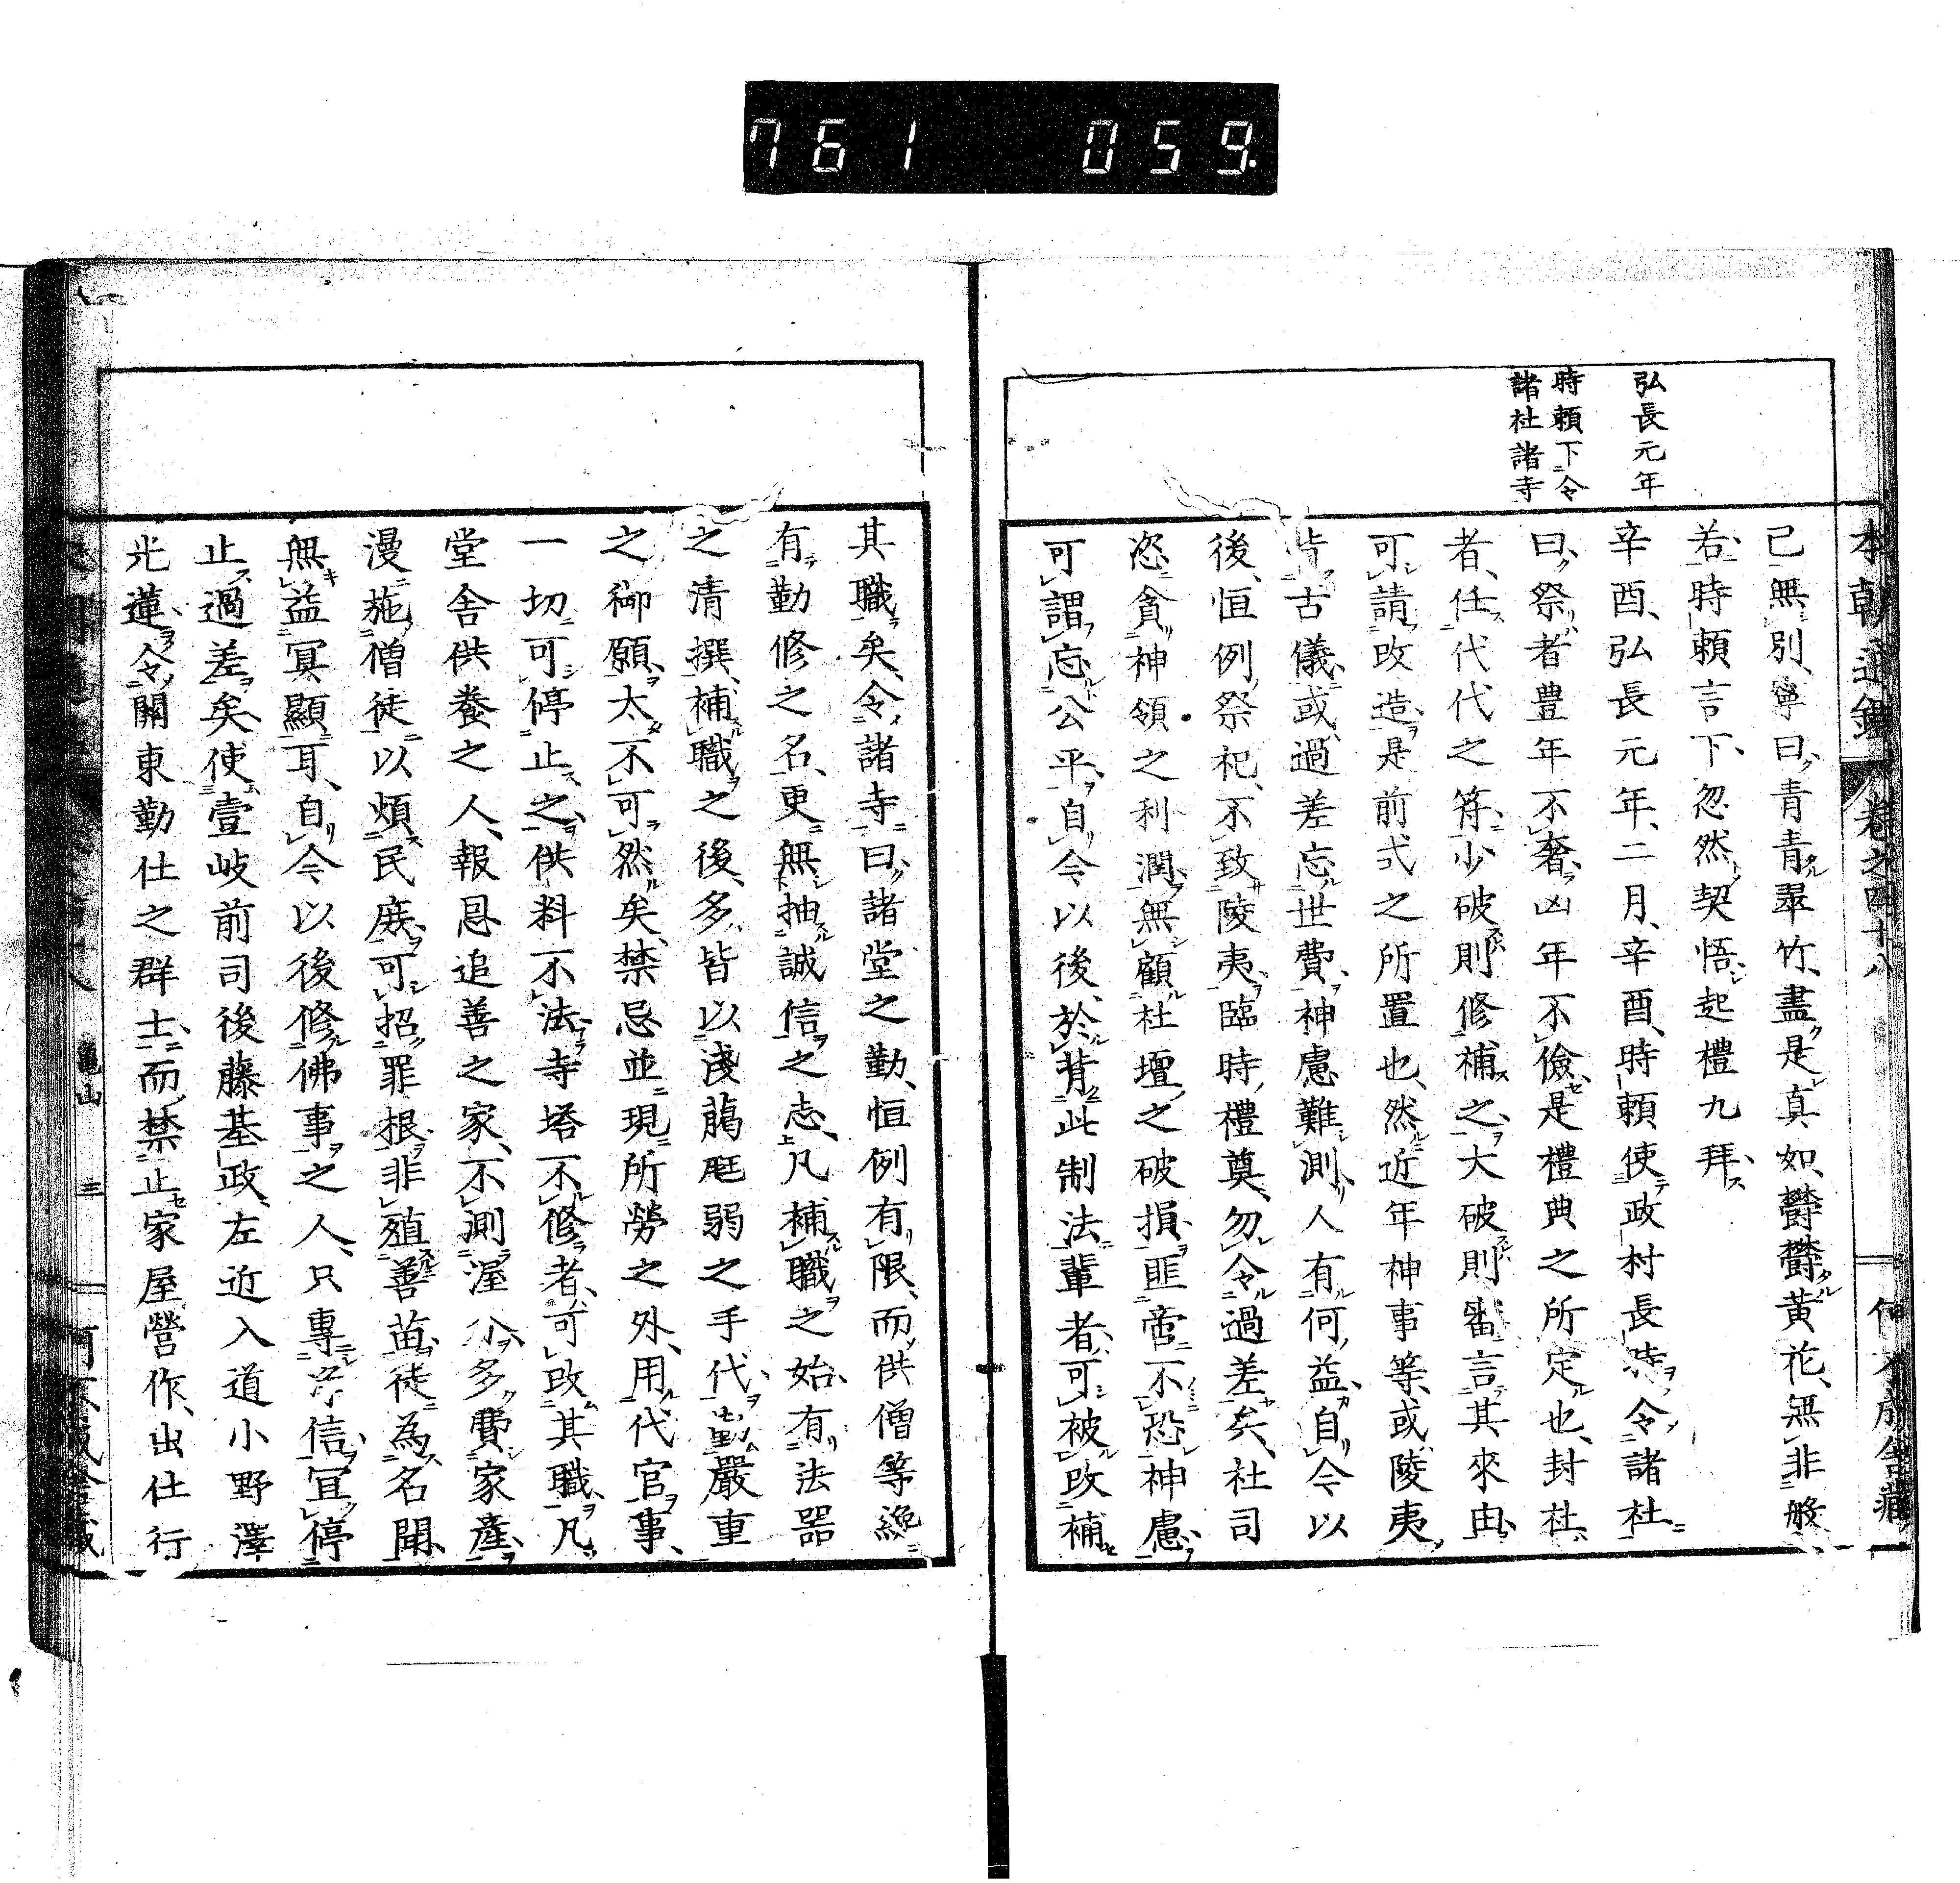 761 059.
本朝通鑑 卷之四十八
弘長元年
時頼下令
諸社諸寺
己無別、寧曰、青青翠竹、盡是真如、欝欝黄花、無非般
若、時頼言下、忽然契悟、起禮九拜、
辛酉、弘長元年、二月、辛酉、時頼使政村長時令諸社
曰、祭者豊年不奢、凶年不儉、是禮典之所定也、封社
者、任代代之符、少破則修補之、大破則審言其來由、
可請改造、是前式之所置也、然近年神事等、或陵夷、
背古儀、或過差忘世費、神慮難測、人有何益、自今以
後、恒例祭祀、不致陵夷、臨時禮奠、勿令過差矣、社司
恣貪神領之利潤、無顧社壇之破損、匪啻不恐神慮、
可謂忘公平、自今以後、於背此制法輩者、可被改補
其職矣、令諸寺曰、諸堂之勤、恒例有限、而供僧等纔
有勤修之名、更無抽誠信之志、凡補職之始、有法器
之清撰、補職之後、多皆以淺﨟尫弱之手代、勤嚴重
之御願、太不可然矣、禁忌並現所勞之外、用代官事、
一切可停止之、供料不法寺塔不修者、可改其職、凡
堂舍供養之人、報恩追善之家、不測涯分、多費家產、
漫施僧徒、以煩民庶、可招罪根、非殖善苗、徒為名聞、
無益冥顯耳、自今以後修佛事之人、只專淨信、宜停
止過差矣、使壹岐前司後藤基政、左近入道小野澤
光蓮、令關東勤仕之群士、而禁止家屋營作、出仕行
龜山 三